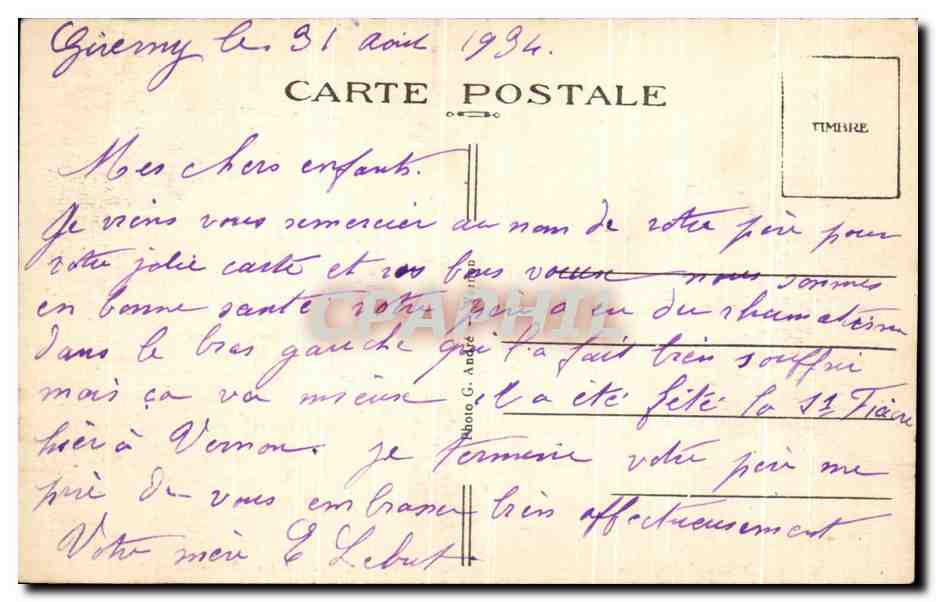 Giverny les 31 août 1934.
CARTE POSTALE
TIMBRE
Mes chers enfants.
Je viens vous remercier au nom de votre père pour
votre jolie carte et vos bons voeux nous sommes
en bonne santé votre père a eu du rhumatisme
dans le bras gauche qui l'a fait bien souffrir
mais ça va mieux il a été fêté la St Fiacre
hier à Vernon. je termine votre père me
prie de vous embrasser bien affectueusement
Votre mère E Lebut.
Photo G. André - Vernon
CPAPHIL